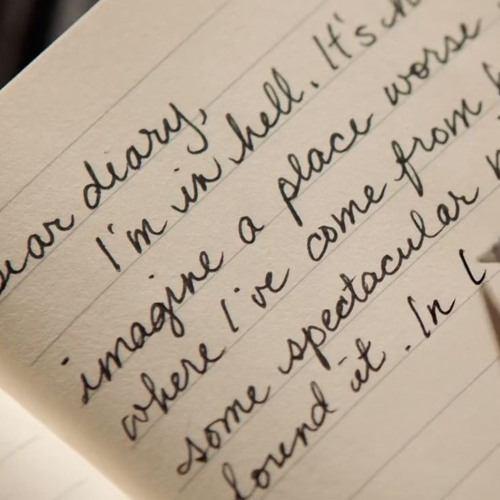 dear diary,
I'm in hell. It's
imagine a place worse
where I've come from
some spectacular
found it. In